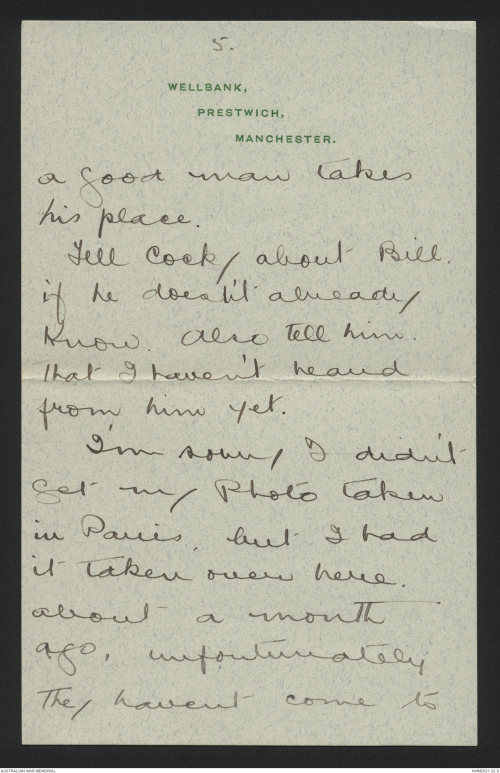 5.
WELLBANK,
PRESTWICH,
MANCHESTER.
a good man takes
his place.
Tell Cocky about Bill.
if he doesn't already
know. Also tell him.
that I haven't heard
from him yet.
I'm sorry I didn't
get my Photo taken
in Paris, but I had
it taken over here.
about a month
ago, unfortunately
they havent come to
AUSTRALIAN WAR MEMORIAL